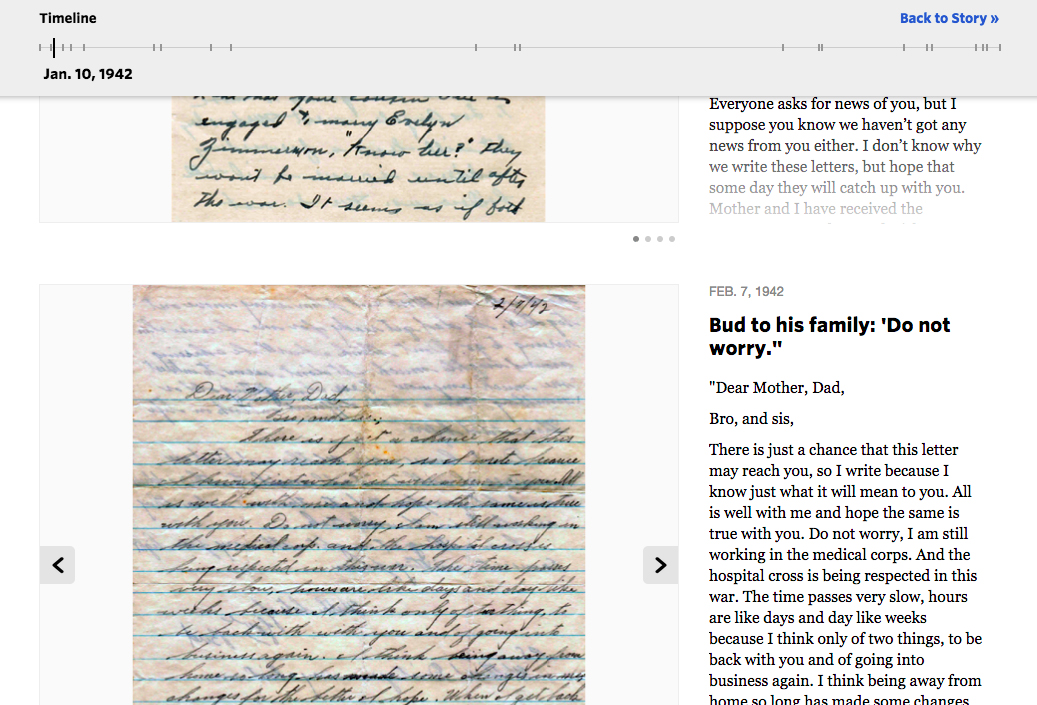 Timeline
Back to Story »
Jan. 10, 1942
your cousin is
engaged to marry Evelyn
Zimmerman, "know her?" they
won't be married until after
the war. It seems as if both
Everyone asks for news of you, but I
suppose you know we haven't got any
news from you either. I don't know why
we write these letters, but hope that
some day they will catch up with you.
Mother and I have received the
2/7/42
Dear Mother, Dad,
Bro, and sis,
There is just a chance that this
letter may reach you, so I write because
I know just what it will mean to you. All
is well with me and hope the same is true
with you. Do not worry, I am still working in
the medical corp. and the hospital cross is
being respected in this war. The time passes
very slow, hours are like days and day like
weeks because I think only of two things, to
be back with with you and of going into
business again. I think being away from
home so long has made some changes in my
changes for the better I hope. When I get back
FEB. 7, 1942
Bud to his family: 'Do not
worry."
"Dear Mother, Dad,
Bro, and sis,
There is just a chance that this letter
may reach you, so I write because I
know just what it will mean to you. All
is well with me and hope the same is
true with you. Do not worry, I am still
working in the medical corps. And the
hospital cross is being respected in this
war. The time passes very slow, hours
are like days and day like weeks
because I think only of two things, to be
back with you and of going into
business again. I think being away from
home so long has made some changes